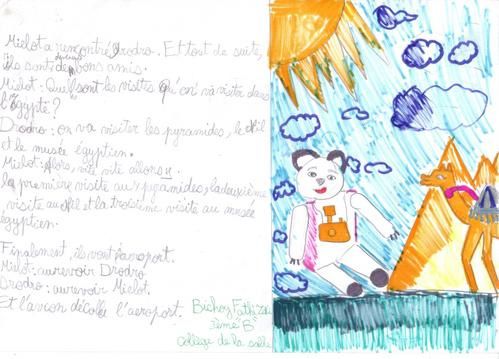 Mielot a rencontré Drodro. Et tout de suite,
ils sont devenus bons amis.
Mielot: Quel sont les visites qu'on va visiter dans
l'Égypte?
Drodro: on va visiter les pyramides, le Nil
et le musée égyptien.
Mielot: Alors, vite vite allons-y
la première visite aux pyramides, la deuxième
visite au Nil et la troisième visite au musée
égyptien.
Finalement, ils vont l'aéroport.
Mielot: aurevoir Drodro
Drodro: aurevoir Mielot.
Et l'avion décolle l'aeroport.
Bishoy Fathy
ème B
Collège de la salle